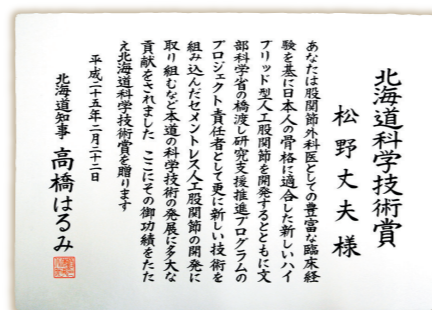 北海道科学技術賞
松野丈夫 様
あなたは股関節外科医としての豊富な臨床経
験を基に日本人の骨格に適合した新しいハイ
ブリッド型人工股関節を開発するとともに文
部科学省の橋渡し研究支援推進プログラムの
プロジェクト責任者として更に新しい技術を
組み込んだセメントレス人工股関節の開発に
取り組むなど本道の科学技術の発展に多大な
貢献をされました ここにその御功績をたた
え北海道科学技術賞を贈ります
平成二十五年二月二十二日
北海道知事 高橋はるみ